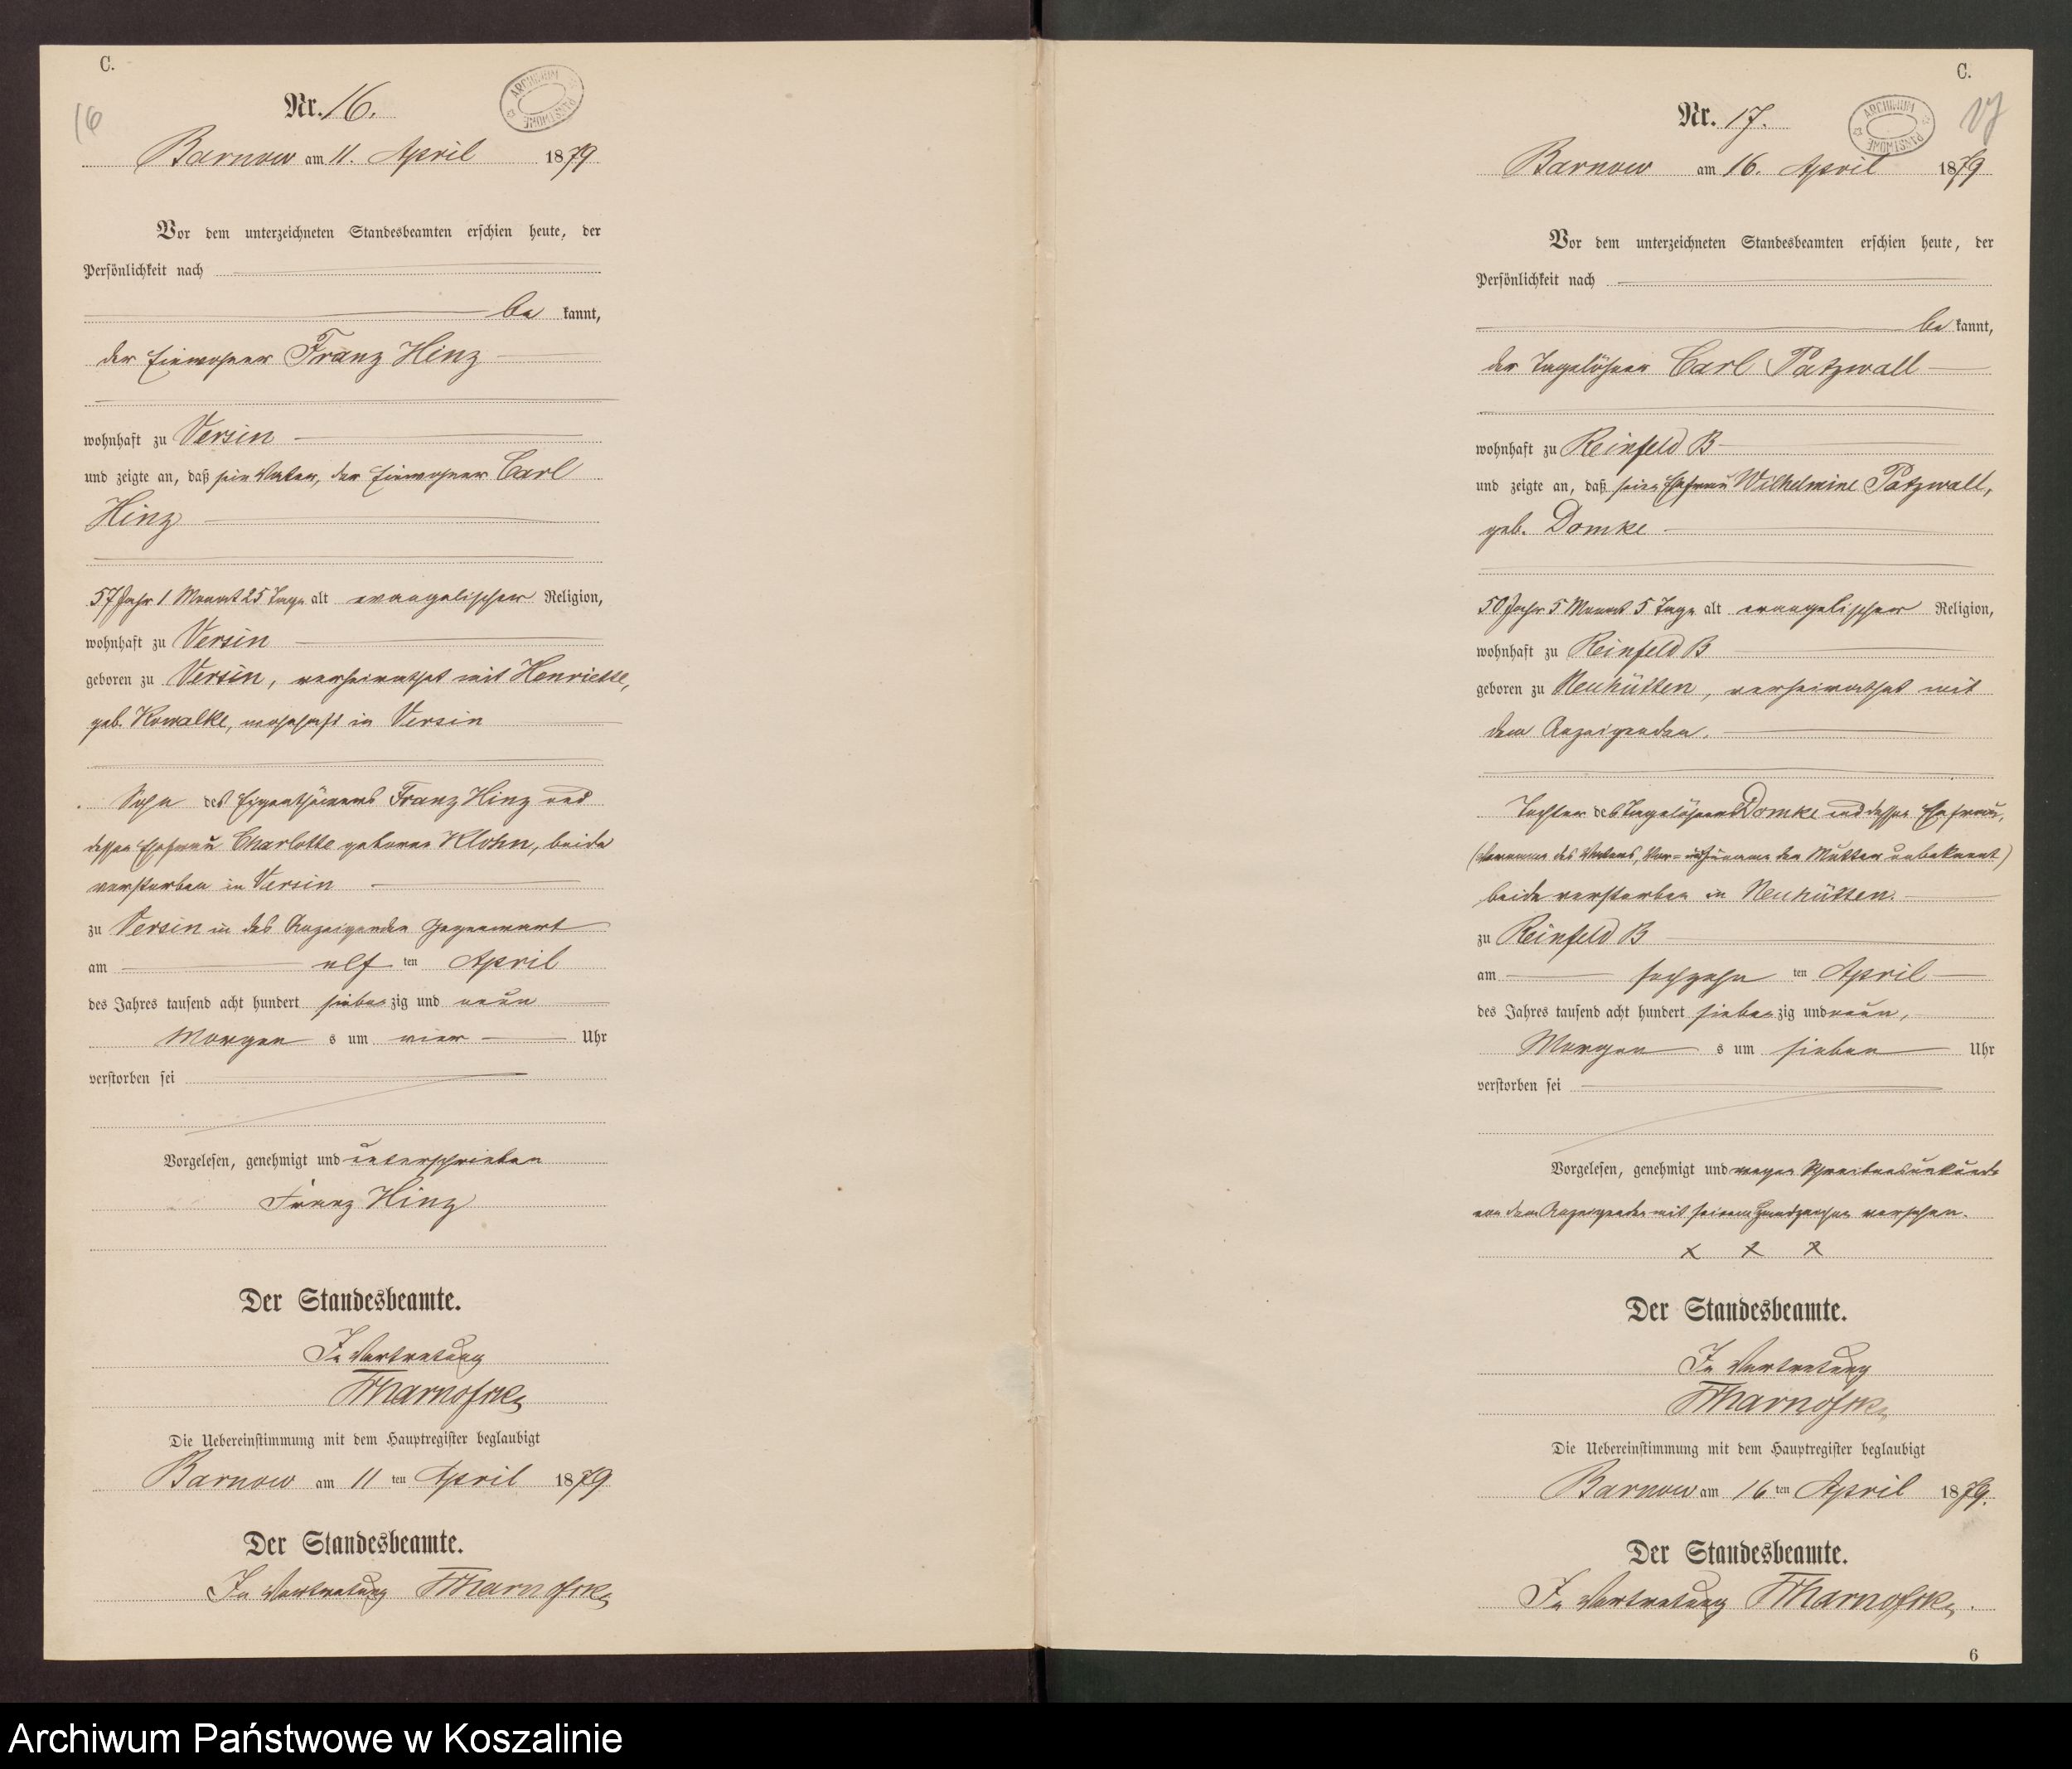 C.
16
Nr. 16.
ARCHIWUM PAŃSTWOWE
Barnow am 11. April 1879
Vor dem unterzeichneten Standesbeamten erschien heute, der
Persönlichkeit nach
be kannt,
der Einwohner Franz Hinz
wohnhaft zu Versin
und zeigte an, daß sein Vater, der Einwohner Carl
Hinz
57 Jahr 1 Monat 25 Tage alt evangelischer Religion,
wohnhaft zu Versin
geboren zu Versin, verheirathet mit Henriette,
geb. Kowalke, wohnhaft in Versin
Sohn des Eigenthümers Franz Hinz und
dessen Ehefrau Charlotte geborne Klohn, beide
verstorben in Versin
zu Versin in des Anzeigenden Gegenwart
am elf ten April
des Jahres tausend acht hundert sieben zig und neun
Morgen s um vier Uhr
verstorben sei
Vorgelesen, genehmigt und unterschrieben
Franz Hinz
Der Standesbeamte.
In Vertretung
Die Uebereinstimmung mit dem Hauptregister beglaubigt
Barnow am 11 ten April 1879
Der Standesbeamte.
In Vertretung
C.
17
Nr. 17.
ARCHIWUM PAŃSTWOWE
Barnow am 16. April 1879
Vor dem unterzeichneten Standesbeamten erschien heute, der
Persönlichkeit nach
be kannt,
der Tagelöhner Carl Patzwall
wohnhaft zu Reinfeld B
und zeigte an, daß seine Ehefrau Wilhelmine Patzwall,
geb. Domke
50 Jahr 5 Monat 5 Tage alt evangelischer Religion,
wohnhaft zu Reinfeld B
geboren zu Neuhütten, verheirathet mit
dem Anzeigenden.
Tochter des Tagelöhners Domke und dessen Ehefrau,
(Vorname des Vaters, Vor- und Zuname der Mutter unbekannt)
beide verstorben in Neuhütten.
zu Reinfeld B
am sechzehn ten April
des Jahres tausend acht hundert sieben zig und neun,
Morgen s um sieben Uhr
verstorben sei
Vorgelesen, genehmigt und wegen Schreibensunkunde
von dem Anzeigenden mit seinem Handzeichen versehen.
x x x
Der Standesbeamte.
In Vertretung
Die Uebereinstimmung mit dem Hauptregister beglaubigt
Barnow am 16 ten April 1879.
Der Standesbeamte.
In Vertretung
6
Archiwum Państwowe w Koszalinie